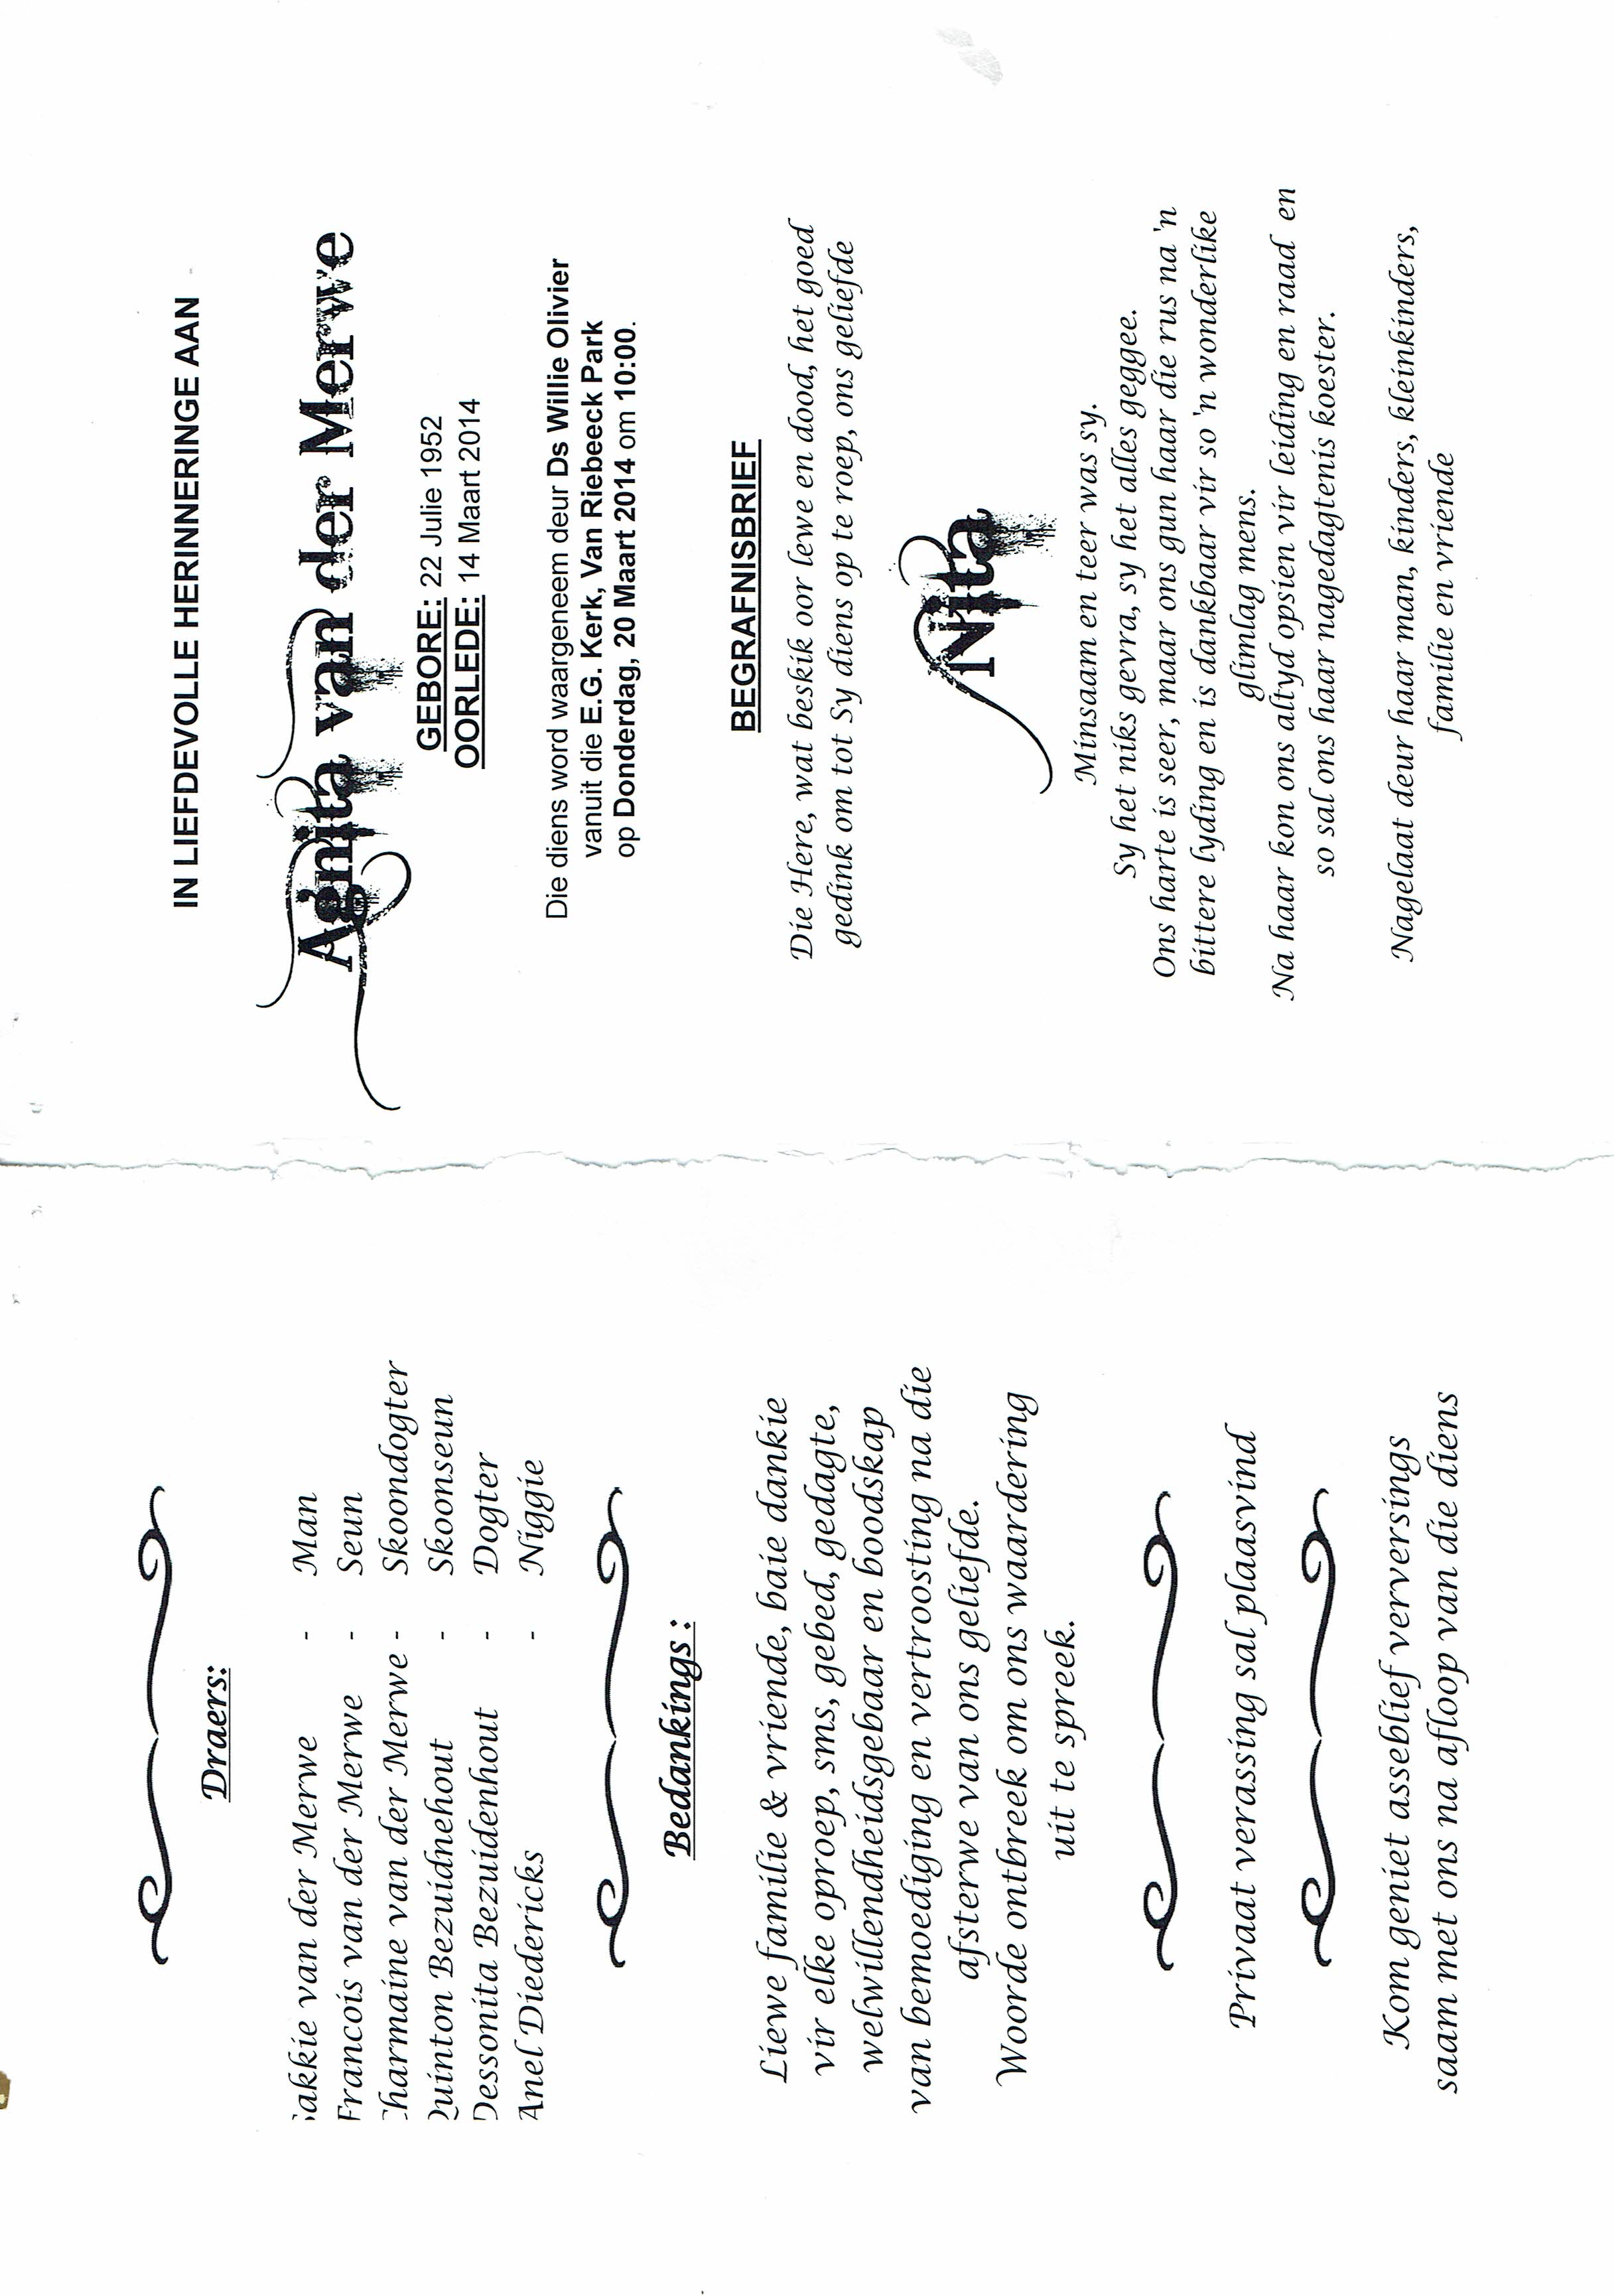 Draers:
akkie van der Merwe - Man
Francois van der Merwe - Seun
harmaine van der Merwe - Skoondogter
uinton Bezuidnehout - Skoonseun
Dessonita Bezuidenhout - Dogter
Anel Diedericks - Niggie
Bedankings :
Liewe familie & vriende, baie dankie
vir elke oproep, sms, gebed, gedagte,
welwillendheidsgebaar en boodskap
van bemoediging en vertroosting na die
afsterwe van ons geliefde.
Woorde ontbreek om ons waardering
uit te spreek.
Privaat verassing sal plaasvind
Kom geniet asseblief verversings
saam met ons na afloop van die diens
IN LIEFDEVOLLE HERINNERINGE AAN
Agnita van der Merwe
GEBORE: 22 Julie 1952
OORLEDE: 14 Maart 2014
Die diens word waargeneem deur Ds Willie Olivier
vanuit die E.G. Kerk, Van Riebeeck Park
op Donderdag, 20 Maart 2014 om 10:00.
BEGRAFNISBRIEF
Die Here, wat beskik oor lewe en dood, het goed
gedink om tot Sy diens op te roep, ons geliefde
Nita
Minsaam en teer was sy.
Sy het niks gevra, sy het alles geggee.
Ons harte is seer, maar ons gun haar die rus na 'n
bittere lyding en is dankbaar vir so 'n wonderlike
glimlag mens.
Na haar kon ons altyd opsien vir leiding en raad en
so sal ons haar nagedagtenis koester.
Nagelaat deur haar man, kinders, kleinkinders,
familie en vriende